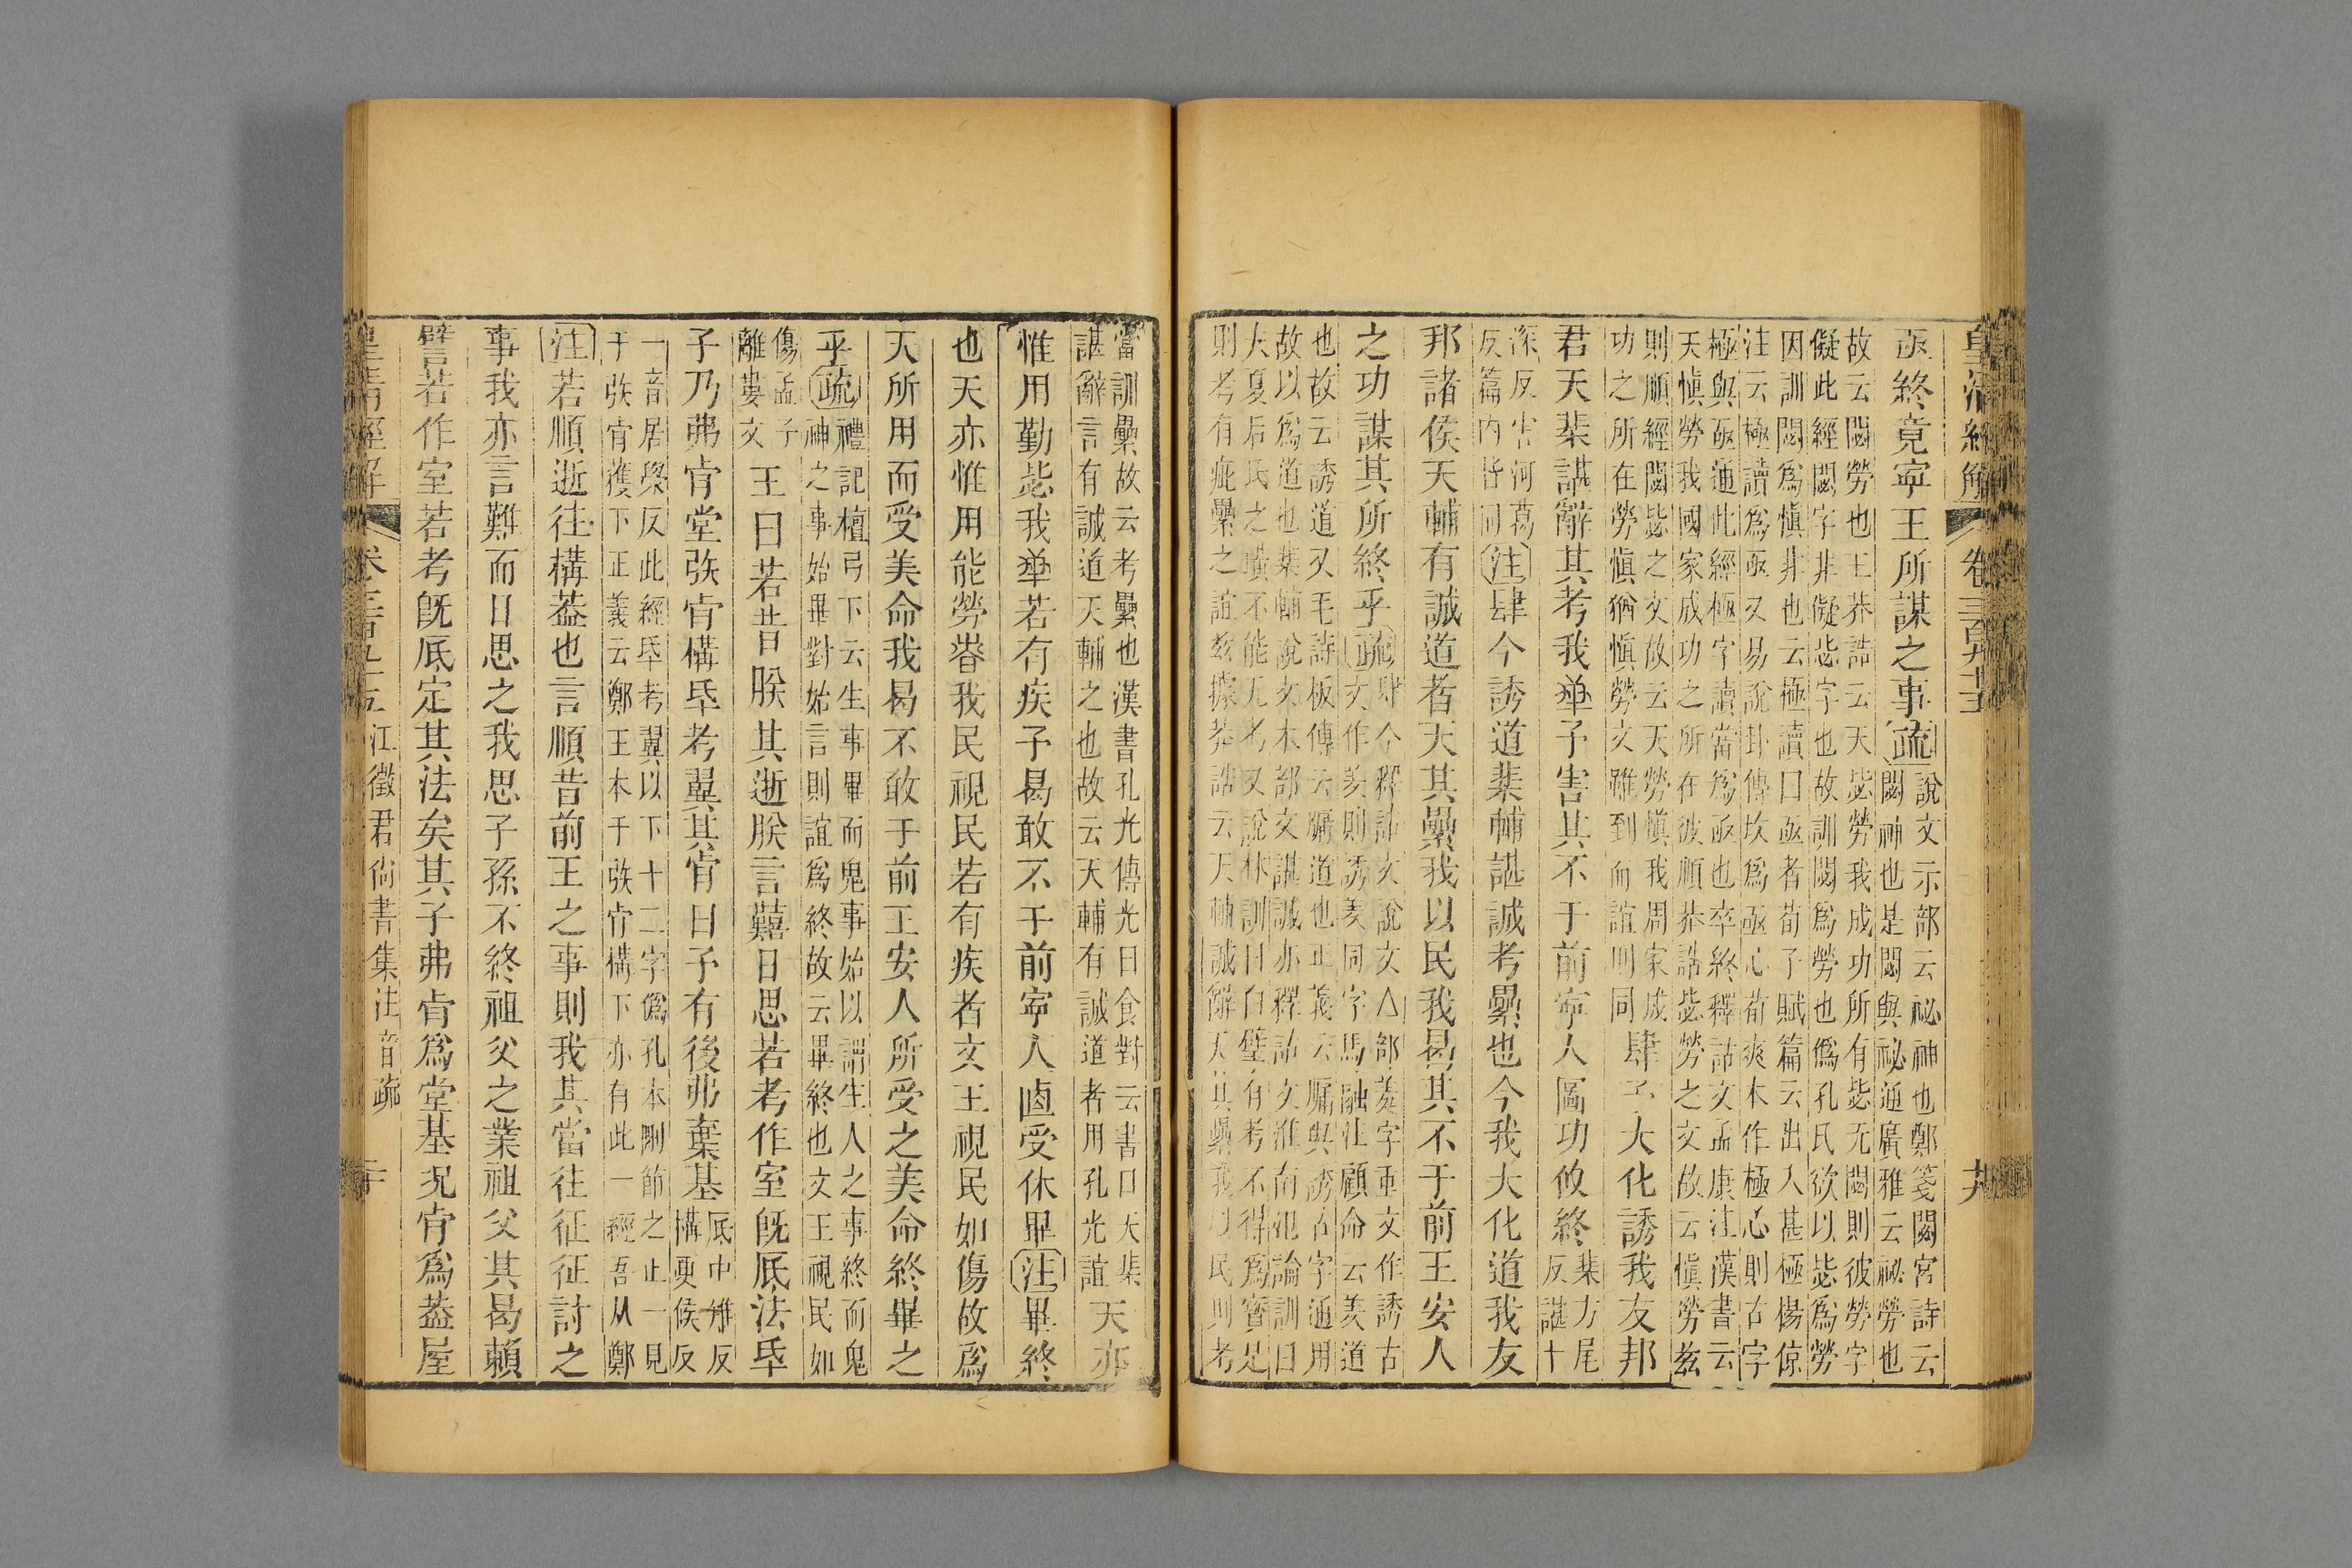 皇清經解 卷三百九十五 十九
亟終竟寍王所謀之事疏
說文示部云祕神也鄭箋閟宮詩云
閟神也是閟與祕通廣雅云祕勞也
故云閟勞也王莽誥云天毖勞我成功所有毖无閟則彼勞字
儗此經閟字非儗毖字也故訓閟爲勞也僞孔氏欲以毖爲勞
因訓閟爲愼非也云極讀曰亟者荀子賦篇云出入甚極楊倞
注云極讀爲亟又易說卦傳坎爲亟心荀爽本作極心則古字
極與亟通此經極字讀當爲亟也卒終釋詁文孟康注漢書云
天愼勞我國家成功之所在彼順莽誥毖勞之文故云愼勞茲
則順經閟毖之文故云天勞愼我周家成
功之所在勞愼猶愼勞文雖到而誼則同
肆予大化誘我友邦
君天棐諶辭其考我𠦬予害其不于前寍人圖功攸終
棐方尾
反諶十
深反害河葛
反篇內皆同
注肆今誘道棐輔諶誠考纍也今我大化道我友
邦諸侯天輔有誠道者天其纍我以民我曷其不于前王安人
之功謀其所終乎疏
肆今釋詁文說文厶部羑字重文作誘古
文作羑則誘羑同字馬融注顧命云羑道
也故云誘道又毛詩板傳云牖道也正義云牖與誘古字通用
故以爲道也棐輔說文木部文諶誠亦釋詁文淮南氾論訓曰
大夏后氏之璜不能无考又說林訓曰白璧有考不得爲寶是
則考有疵纍之誼茲據莽誥云天輔誠辭天其纍我以民則考
當訓纍故云考纍也漢書孔光傳光日食對云書曰天棐
諶辭言有誠道天輔之也故云天輔有誠道者用孔光誼
天亦
惟用勤毖我𠦬若有疾予曷敢不于前寍人卣受休畢注畢終
也天亦惟用能勞眘我民視民若有疾者文王視民如傷故爲
天所用而受美命我曷不敢于前王安人所受之美命終畢之
乎疏
禮記檀弓下云生事畢而鬼事始以謂生人之事終而鬼
神之事始畢對始言則誼爲終故云畢終也文王視民如
傷孟子
離婁文
王曰若昔朕其逝朕言囏日思若考作室旣厎法氒
子乃弗肯堂矤肯構氒考翼其肯曰予有後弗棄基
厎中雉反
構更候反
一音居㮣反此經氒考翼以下十二字僞孔本刪節之止一見
于矤肯穫下正義云鄭王本于矤肯構下亦有此一經吾从鄭
注若順逝往構葢也言順昔前王之事則我其當往征征討之
事我亦言難而日思之我思子孫不終祖父之業祖父其曷賴
譬若作室若考旣厎定其法矣其子弗肯爲堂基况肯爲葢屋
皇清經解 卷三百九十五 江徵君尚書集注音疏 二十